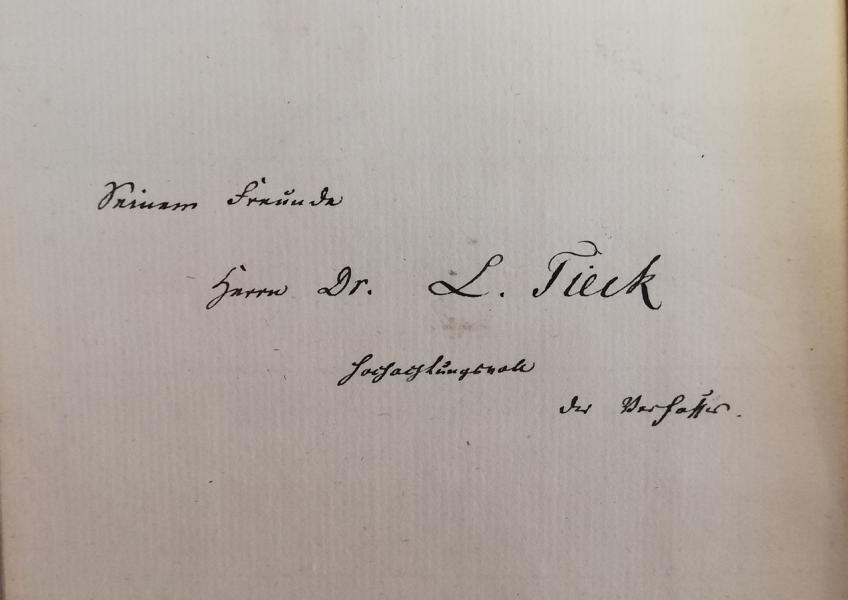 Seinem Freunde
Herrn Dr. L. Tieck
hochachtungsvoll
der Verfasser.